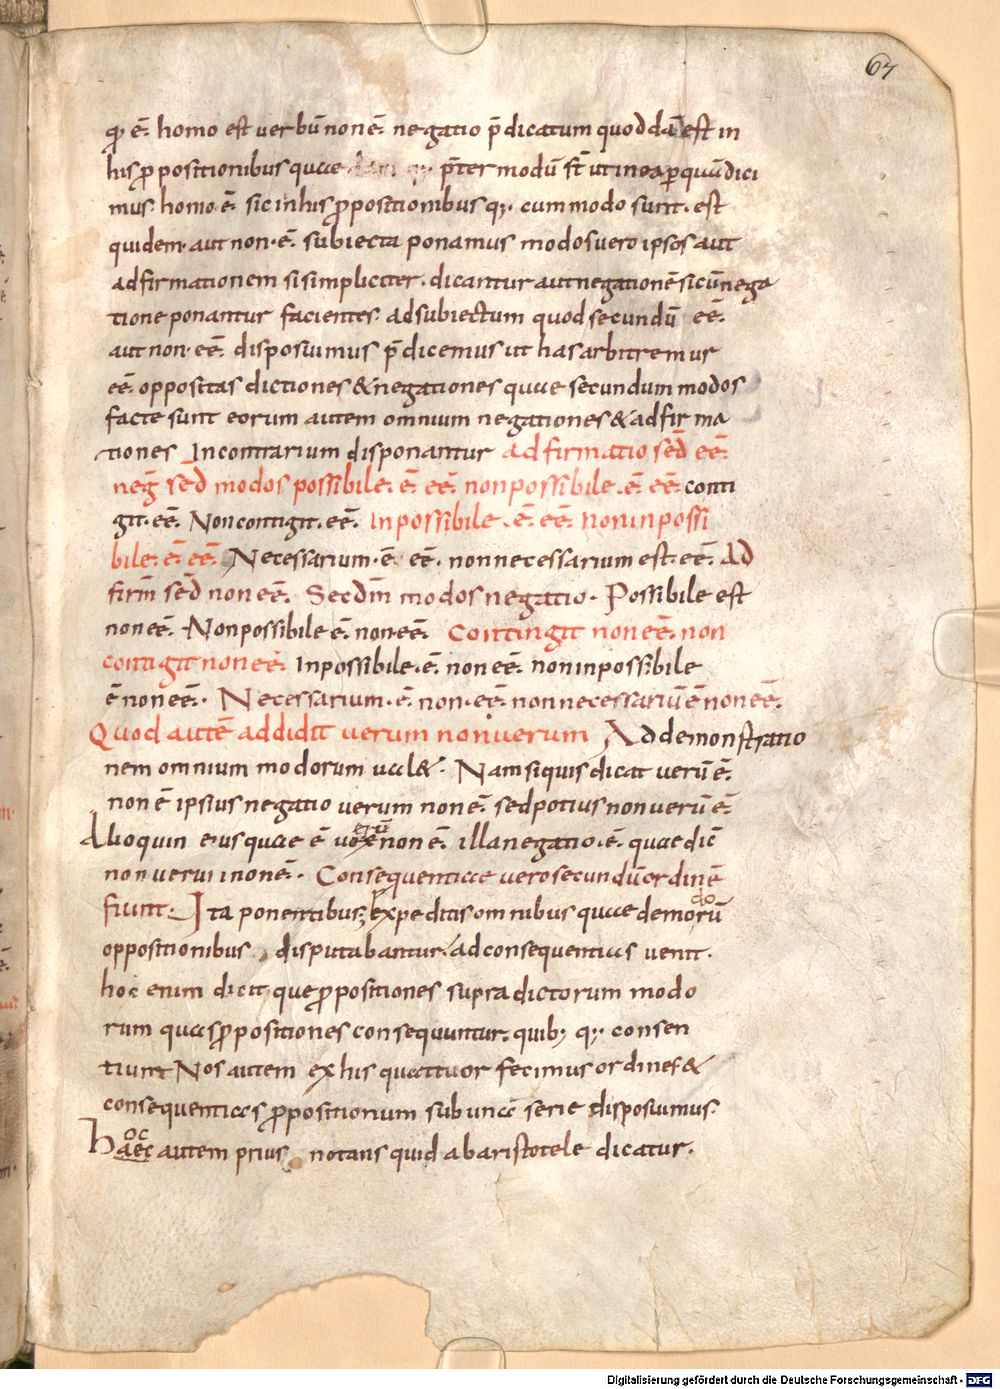 67
qđ ē. homo est uerbū non ē. negatio p̄dicatum quoddā est in
his ꝓpositionibus quae q; p̄ter modū st̄ ut in ea ꝑ quā dici
mus. homo ē. sic in his ꝓpositionibus q;. cum modo sunt. est
quidem. aut non. ē. subiecta ponamus modos uero ipsos aut
adfirmationem si simpliciter. dicantur aut negationē si cū nega
tione ponantur facientes. ad subiectum quod secundū eē.
aut non. eē. disposuimus p̄dicemus ut has arbitremur
eē. oppositas dictiones & negationes quae secundum modos
facte sunt eorum autem omnium negationes & adfirma
tiones In contrarium disponantur adfirmatio sed̄ eē.
neg̅ sed̄ modos possibile. ē. eē. non possibile. ē. eē. conti
git. eē. Non contigit. eē. Inpossibile. ē. eē. non inpossi
bile. ē. eē. Necessarium. ē. eē. non necessarium est. eē. Ad
firm̄ sed̄ non eē. Secdm̄ modos negatio. Possibile est
non eē. Non possibile ē. non. eē. Contingit non eē. non
contigit non eē. Inpossibile. ē. non eē. non inpossibile
ē non eē. Necessarium. ē. non. eē. non necessariū ē non eē.
Quod autē addidit uerum non uerum Ad demonstratio
nem omnium modorum ual&. Nam si quis dicat uerū ē.
non ē ipsius negatio uerum non ē. sed potius non uerū ē.
Alioquin eius quae ē non ē. illa negatio. ē. quae dic̄
non uerum non ē. Consequentiae uero secundū ordinē
fiunt. Ita ponentibus; Expeditis omnibus quae de modorū
oppositionibus disputabantur. ad consequentias uenit.
hoc enim dicit que ꝓpositiones supradictorum modo
rum quas ꝓpositiones consequuntur. quib; q; consen
tiunt Nos autem ex his quattuor fecimus ordines &
consequentias ꝓpositionum sub una serie disposuimus.
Hoc autem prius notans quid ab aristotele dicatur.
Digitalisierung gefördert durch die Deutsche Forschungsgemeinschaft - DFG